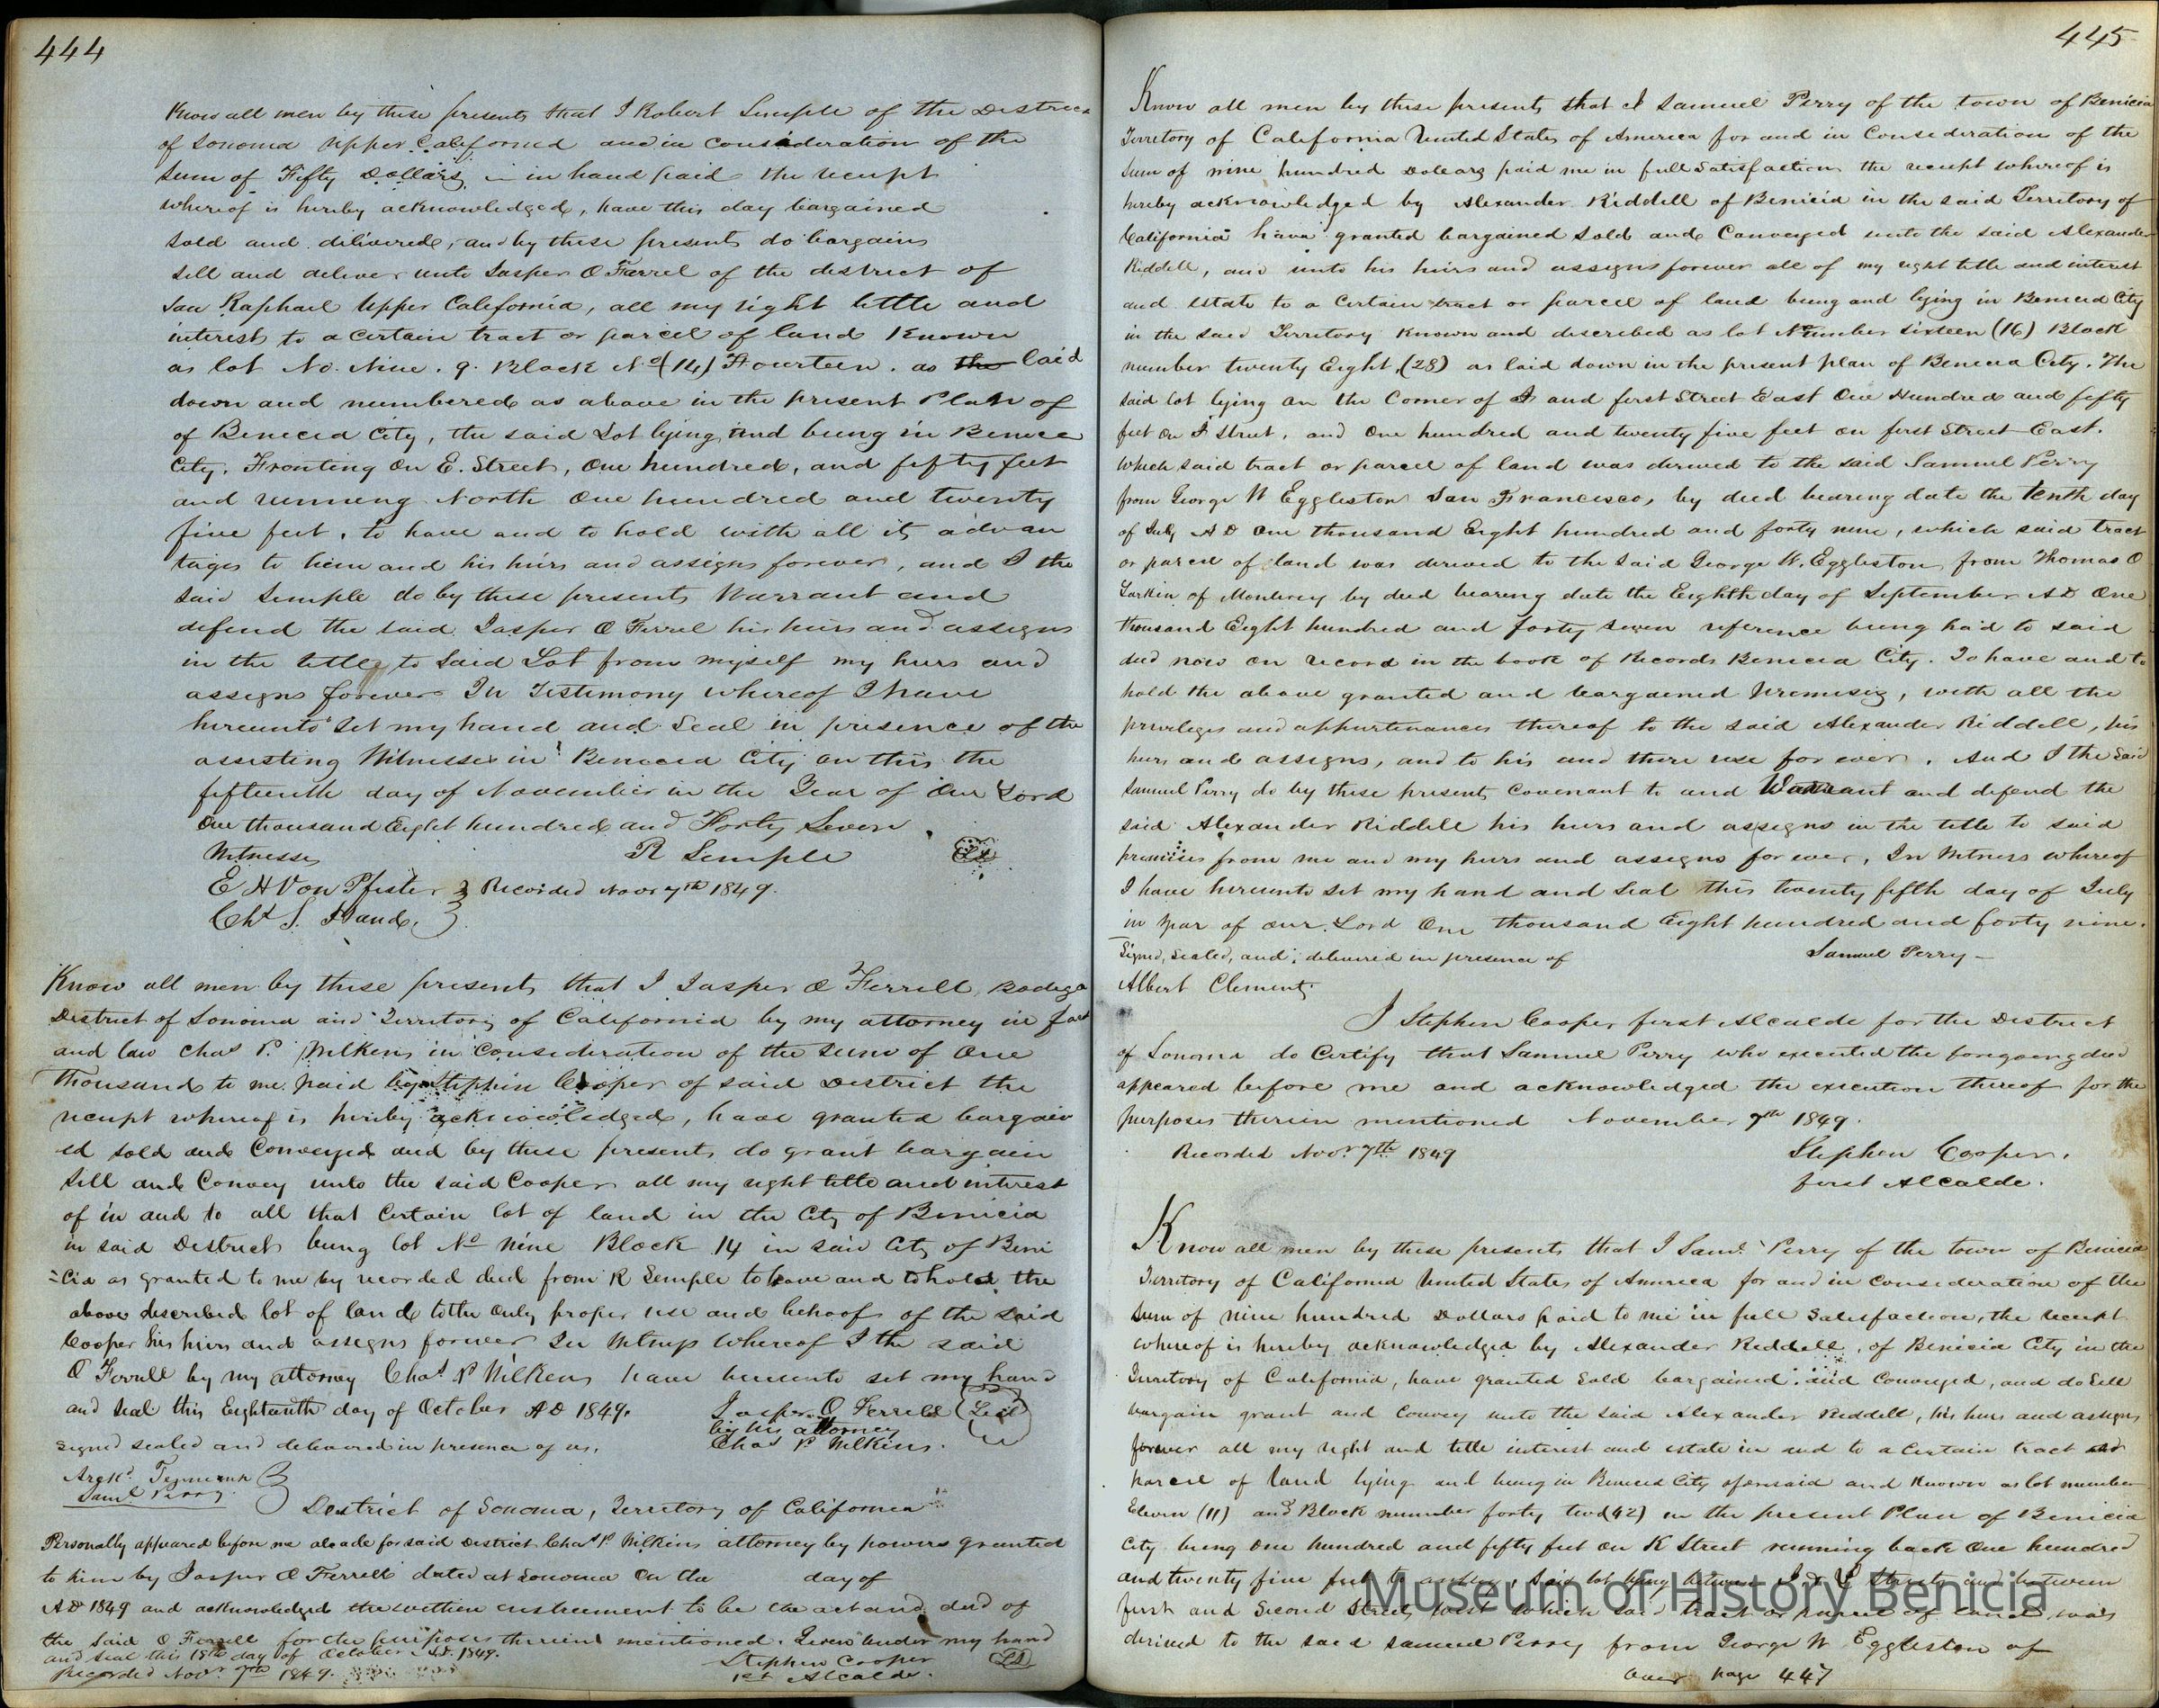 444
Know all men by these presents that I Robert Semple of the District
of Sonoma Upper California and in consideration of the
sum of Fifty Dollars in hand paid the receipt
whereof is hereby acknowledged, have this day bargained
sold and delivered, and by these presents do bargain
sell and deliver unto Jasper O Farrel of the district of
San Raphael Upper California, all my right tittle and
interest to a certain tract or parcel of land Known
as lot No. Nine . 9. Block No (14) Fourteen . as the laid
down and numbered as above in the present Plan of
of Benicia City, the said Lot lying and being in Benicia
City. Fronting on E. Street, One hundred, and fifty feet
and running North One hundred and twenty
five feet. to have and to hold with all its advan
tages to him and his heirs and assigns forever, and I the
said Semple do by these presents Warrant and
defend the said Jasper O Ferrel his heirs and assigns
in the title to said Lot from myself my heirs and
assigns forever In Testimony whereof I have
hereunto set my hand and seal in presence of the
assisting Witnesses in Benicia City on this the
fifteenth day of November in the Year of Our Lord
One thousand Eight hundred and Forty Seven.
Witnesses R Semple LS
E H Von Pfister } Recorded Novr 7th 1849.
Chs S. Hand. }
Know all men by these presents that I Jasper O Ferrell Bodega
District of Sonoma and Territory of California by my attorney in fact
and law Chas P. Wilkins in Consideration of the sum of One
Thousand to me paid by Stephen Cooper of said District the
receipt whereof is hereby acknowledged, have granted bargain
ed sold and Conveyed and by these presents do grant bargain
sell and Convey unto the said Cooper all my right title and interest
of in and to all that Certain lot of land in the City of Benicia
in said District being lot No nine Block 14 in said City of Beni
=cia as granted to me by recorded deed from R Semple to have and to hold the
above described lot of land to the only proper use and behoof of the said
Cooper his heirs and assigns forever In Witness Whereof I the said
O Ferrell by my attorney Chas P Wilkins have hereunto set my hand
and seal this Eighteenth day of October AD 1849. Jasper O Ferrell (Seal)
by his attorney
Signed sealed and delivered in presence of us. Chas P Wilkins.
Saml Perry
District of Sonoma, Territory of California
Personally appeared before me alcade for said District Chas P Wilkins attorney by powers granted
to him by Jasper O Ferrell dated at Sonoma on the day of
AD 1849 and acknowledged the within instrument to be the act and deed of
the said O Ferrell for the purposes therein mentioned. Given under my hand
and seal this 18th day of October AD. 1849. Stephen Cooper LS
Recorded Novr 7th 1849. 1st Alcalde.
445
Know all men by these presents that I Samuel Perry of the town of Benicia
Territory of California United States of America for and in Consideration of the
sum of nine hundred Dollars paid me in full satisfaction the receipt whereof is
hereby acknowledged by Alexander Riddell of Benicia in the said Territory of
California have granted bargained sold and Conveyed unto the said Alexander
Riddell, and unto his heirs and assigns forever all of my right title and interest
and estate to a Certain tract or parcel of land being and lying in Benicia City
in the said Territory Known and described as lot Number sixteen (16) Block
number twenty Eight (28) as laid down in the present plan of Benicia City. The
said lot lying on the Corner of I and first Street East One Hundred and fifty
feet on I Street, and One hundred and twenty five feet on first Street East.
Which said tract or parcel of land was derived to the said Samuel Perry
from George W Eggleston San Francisco, by deed bearing date the tenth day
of July AD One thousand Eight hundred and forty nine, which said tract
or parcel of land was derived to the said George W. Eggleston from Thomas O
Larkin of Monterey by deed bearing date the Eighth day of September AD One
thousand Eight hundred and forty seven reference being had to said
deed now on record in the book of Records Benicia City. To have and to
hold the above granted and bargained premises, with all the
privileges and appurtenances thereof to the said Alexander Riddell, his
heirs and assigns, and to his and there use for ever. And I the said
Samuel Perry do by these presents Covenant to and Warrant and defend the
said Alexander Riddell his heirs and assigns in the title to said
premises from me and my heirs and assigns for ever, In Witness whereof
I have hereunto set my hand and seal this twenty fifth day of July
in year of our Lord One thousand Eight hundred and forty nine.
Signed, sealed, and delivered in presence of Samuel Perry
Albert Clements
I Stephen Cooper first Alcalde for the District
of Sonoma do Certify that Samuel Perry who executed the foregoing deed
appeared before me and acknowledged the execution thereof for the
purposes therein mentioned November 7th 1849.
Recorded Novr 7th 1849 Stephen Cooper.
first Alcalde.
Know all men by these presents that I Saml Perry of the town of Benicia
Territory of California United States of America for and in Consideration of the
sum of nine hundred Dollars paid to me in full satisfaction, the receipt
whereof is hereby acknowledged by Alexander Riddell, of Benicia City in the
Territory of California, have granted sold bargained and Conveyed, and do sell
bargain grant and Convey unto the said Alexander Riddell, his heirs and assigns
forever all my right and title interest and estate in and to a Certain tract
parcel of land lying and being in Benicia City aforesaid and Known as lot number
Eleven (11) and Block number forty two (42) in the present Plan of Benicia
City being One hundred and fifty feet on K Street running back One hundred
and twenty five feet said lot lying between Street and between
first and Second Streets West Which said tract or parcel of land was
derived to the said Samuel Perry from George W Eggleston of
Over page 447
Museum of History Benicia